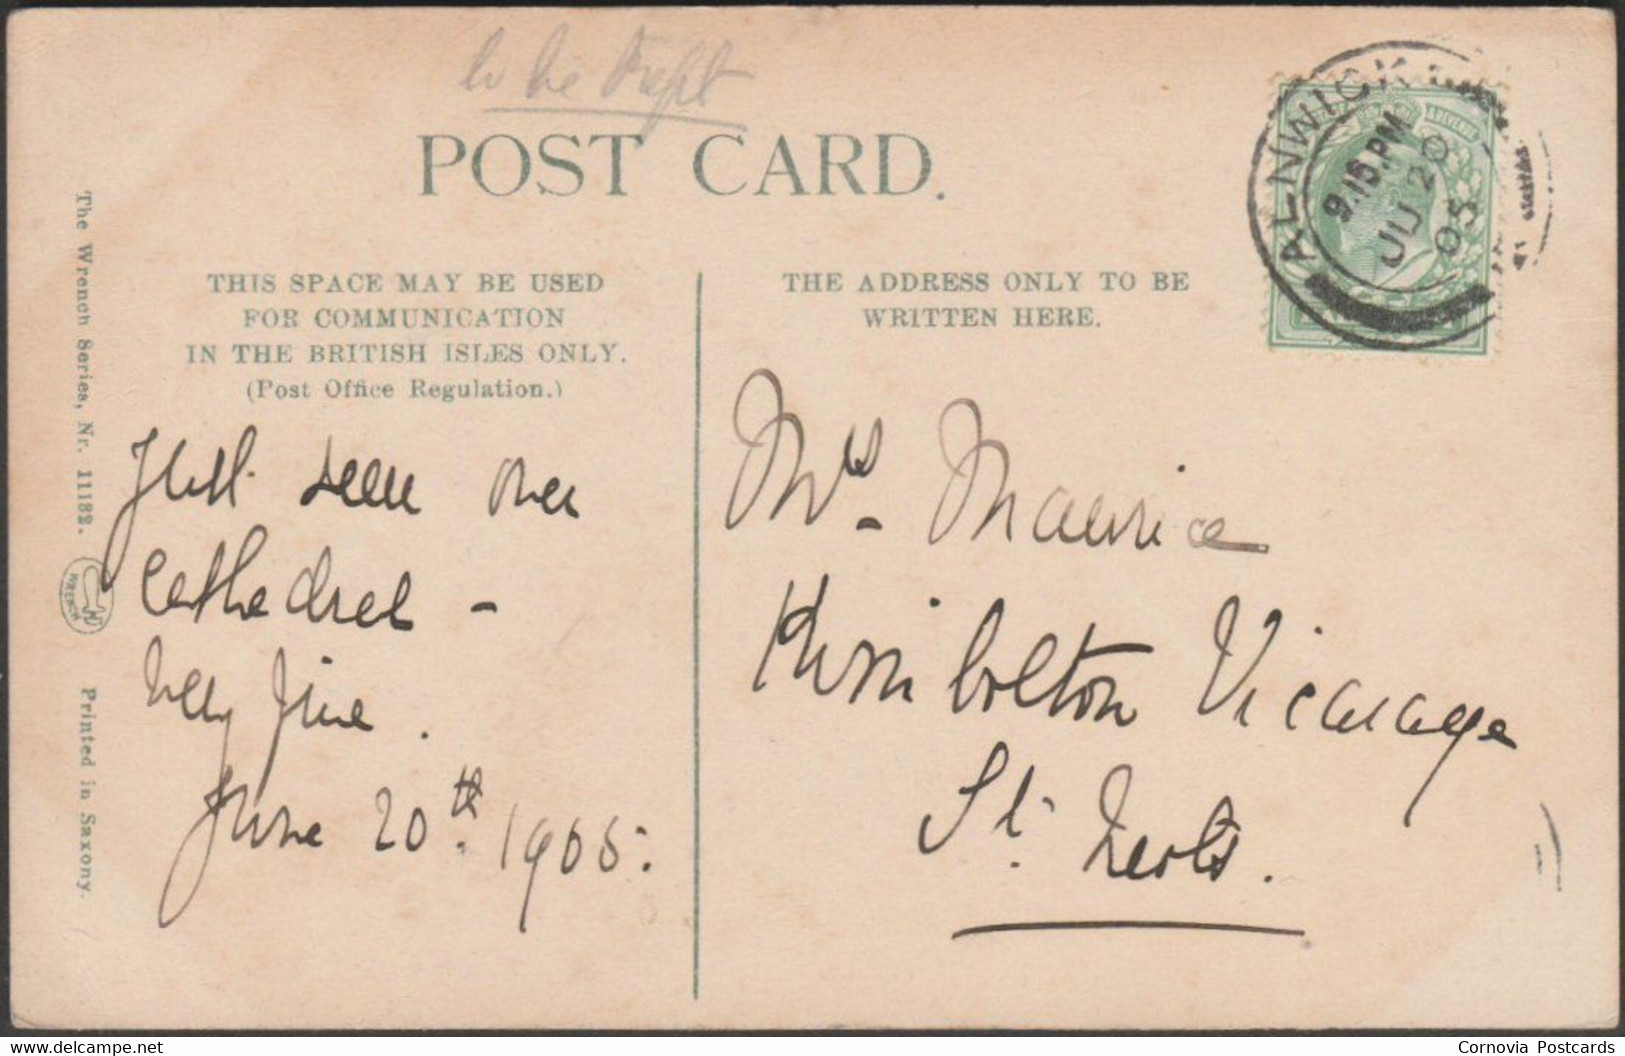 to be kept
POST CARD.
THIS SPACE MAY BE USED
FOR COMMUNICATION
IN THE BRITISH ISLES ONLY.
(Post Office Regulation.)
THE ADDRESS ONLY TO BE
WRITTEN HERE.
ALNWICK
9.15.PM
JU 20
05
REVENUE
The Wrench Series, Nr. 11182.
WRENCH
Printed in Saxony.
Just seen over
Cathedral -
very fine.
June 20th. 1905.
Mrs. Maurice
Kimbolton Vicarage
St. Neots.
© the-saleroom
Cornovia Postcards